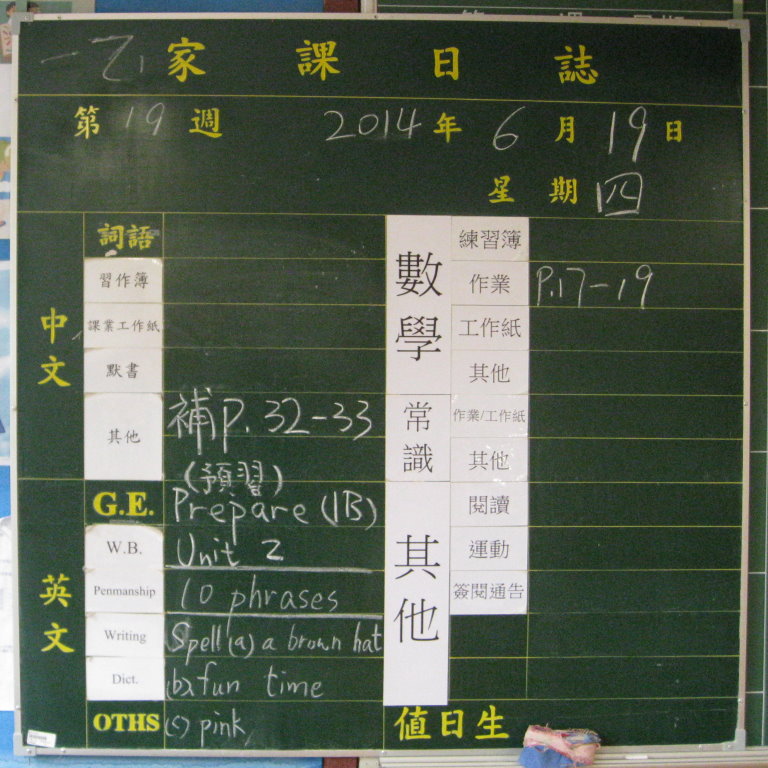 一乙 家課日誌
第 19 週 2014 年 6 月 19 日
星期 四
中文
詞語
習作簿
課業工作紙
默書
其他 補P.32-33
(預習)
英文
G.E. Prepare (1B)
W.B. Unit 2
Penmanship 10 phrases
Writing Spell (a) a brown hat
Dict. (b) fun time
OTHS (c) pink
數學
練習簿
作業 P.17-19
工作紙
其他
常識
作業/工作紙
其他
其他
閱讀
運動
簽閱通告
值日生